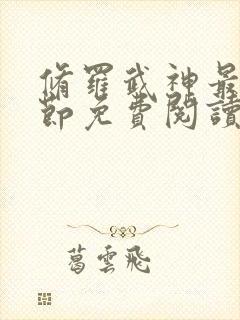 脩羅武神最
節免費閱讀
葛雲飛